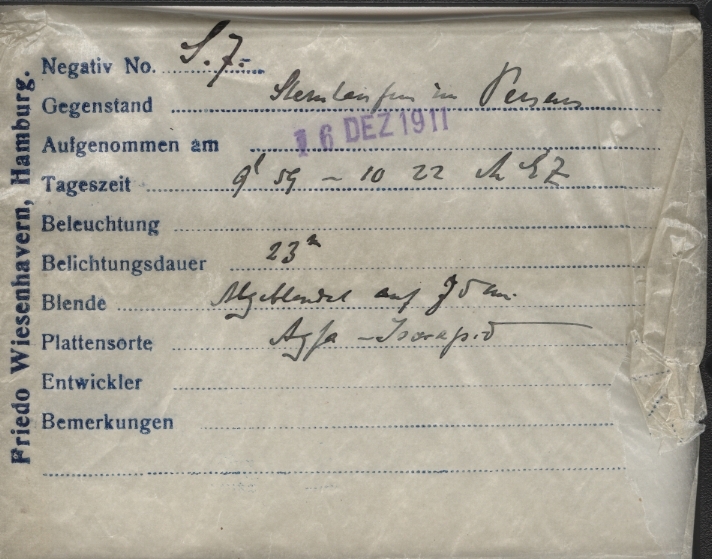 Friedo Wiesenhavern, Hamburg.
Negativ No. S. 7.
Gegenstand Sternhaufen im Perseus
Aufgenommen am 16 DEZ 1911
Tageszeit 9h 59 – 10 22 M E Z
Beleuchtung
Belichtungsdauer 23m
Blende Abgeblendet auf
Plattensorte Agfa – Isorapid
Entwickler
Bemerkungen